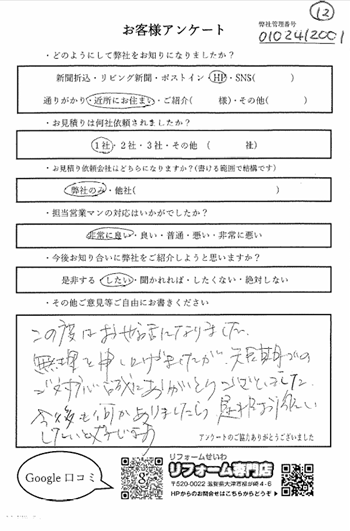 ⑫
お客様アンケート
弊社管理番号
0102412001
・どのようにして弊社をお知りになりましたか？
新聞折込・リビング新聞・ポストイン・HP・SNS( )
通りがかり・近所にお住まい・ご紹介( 様)・その他( )
・お見積りは何社依頼されましたか？
1社・2社・3社・その他 ( 社)
・お見積り依頼会社はどちらになりますか？(書ける範囲で結構です)
弊社のみ・他社( )
・担当営業マンの対応はいかがでしたか？
非常に良い・良い・普通・悪い・非常に悪い
・今後お知り合いに弊社をご紹介しようと思いますか？
是非する・したい・聞かれれば・したくない・絶対しない
・その他ご意見等ご自由にお書きください
この度はお世話になりました。
無理を申し上げましたが、短期での
ご対応誠にありがとうございました。
今後も何かありましたら是非お願い
したいと思います
アンケートのご協力ありがとうございました
Google 口コミ
リフォームせいわ
リフォーム専門店
〒520-0022 滋賀県大津市柳が崎4-6
HPからのお問合せはこちらからどうぞ